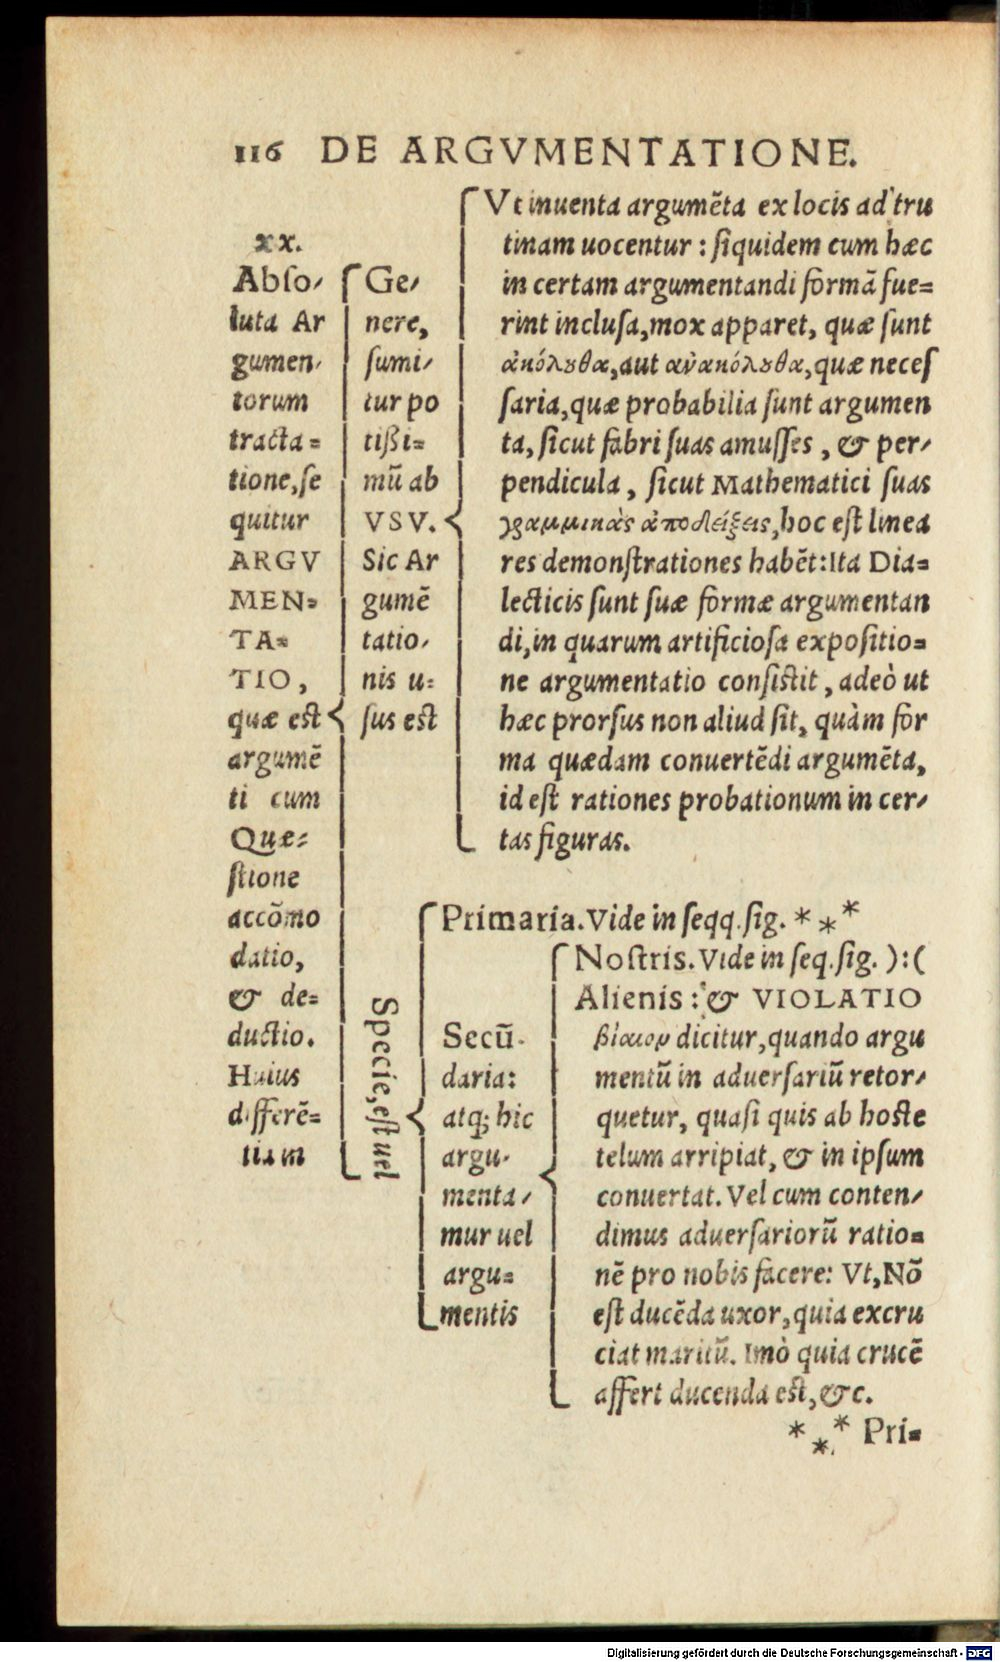 116 DE ARGVMENTATIONE.
xx.
Abso/
luta Ar
gumen/
torum
tracta=
tione, se
quitur
ARGV
MEN=
TA=
TIO,
quæ est
argumē
ti cum
Quæ=
stione
accōmo
datio,
& de=
ductio.
Huius
differē=
tia in
Ge/
nere,
sumi/
tur po
tißi=
mū ab
VSV.
Sic Ar
gumē
tatio/
nis u=
sus est
Vt inuenta argumēta ex locis ad tru
tinam uocentur : siquidem cum hæc
in certam argumentandi formā fue=
rint inclusa, mox apparet, quæ sunt
ἀκόλȣθα, aut αν̓ακόλȣθα, quæ neces
saria, quæ probabilia sunt argumen
ta, sicut fabri suas amusses, & per/
pendicula, sicut Mathematici suas
γραμμικὰς ἀποδείξεις, hoc est linea
res demonstrationes habēt: Ita Dia=
lecticis sunt suæ formæ argumentan
di, in quarum artificiosa expositio=
ne argumentatio consistit, adeò ut
hæc prorsus non aliud sit, quàm for
ma quædam conuertēdi argumēta,
id est rationes probationum in cer/
tas figuras.
Specie, est uel
Primaria. Vide in seqq. sig. ***
Secū-
daria:
atq; hic
argu-
menta/
mur uel
argu=
mentis
Nostris. Vide in seq. sig. ):(
Alienis : & VIOLATIO
βίαιον dicitur, quando argu
mentū in aduersariū retor/
quetur, quasi quis ab hoste
telum arripiat, & in ipsum
conuertat. Vel cum conten/
dimus aduersariorū ratio=
nē pro nobis facere: Vt, Nō
est ducēda uxor, quia excru
ciat maritū. Imò quia crucē
affert ducenda est, &c.
*** Pri=
Digitalisierung gefördert durch die Deutsche Forschungsgemeinschaft - DFG